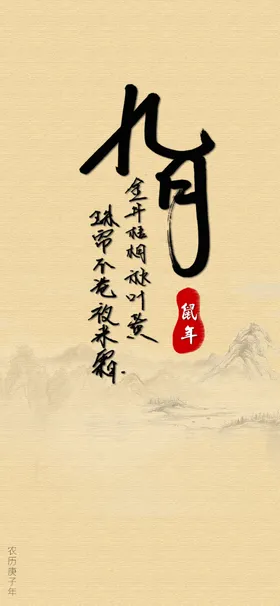 九月
金井梧桐秋叶黄
珠帘不卷夜来霜.
鼠年
农历庚子年